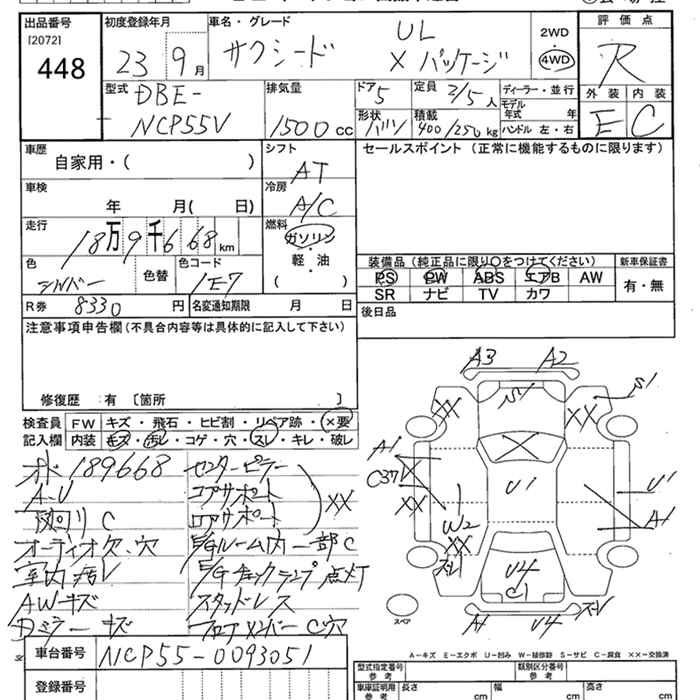 出品番号
[2072]
448
初度登録年月
23年9月
車名・グレード
サクシード
UL
Xパッケージ
2WD
・
4WD
評価点
R
外装 内装
E C
型式
DBE-
NCP55V
排気量
1500cc
ドア
5
定員 2/5人
形状 バン
積載 400/250kg
ディーラー・並行
モデル年式 年
ハンドル 左・右
車歴
自家用・( )
車検
年 月( 日)
走行
18万9千668km
色
シルバー
色替
色コード
1E7
R券 8330円
名変通知期限 月 日
シフト
AT
冷房
A/C
燃料
ガソリン
・
軽・油
( )
セールスポイント(正常に機能するものに限ります)
装備品(純正品に限り○をつけてください)
PS PW ABS エアB AW
SR ナビ TV カワ
新車保証書
有・無
後日品
注意事項申告欄(不具合内容等は具体的に記入して下さい)
修復歴 有 [箇所 ]
検査員記入欄
FW キズ・飛石・ヒビ割・リペア跡・×要
内装 キズ・汚レ・コゲ・穴・スレ・キレ・破レ
オド 189668
A-U
下回り C
オーディオ欠、穴
室内汚レ
AWキズ
Dミラーキズ
センターピラー
コアサポート
ロアサポート
XX
E/Gルーム内一部C
E/Gチェックランプ点灯
スタッドレス
フロアメンバーC穴
A3 A2
S1
XX XX
A1
C3穴
XX
U1
W2
XX
U1
A1
U4
C1
A1 U4
スペア
A-キズ E-エクボ U-凹み W-補修跡 S-サビ C-腐食 ××-交換済
車台番号 NCP55-0093051
登録番号
型式指定番号
参考
類別区分番号
参考
車庫証明用
参考
長さ cm
幅 cm
高さ cm